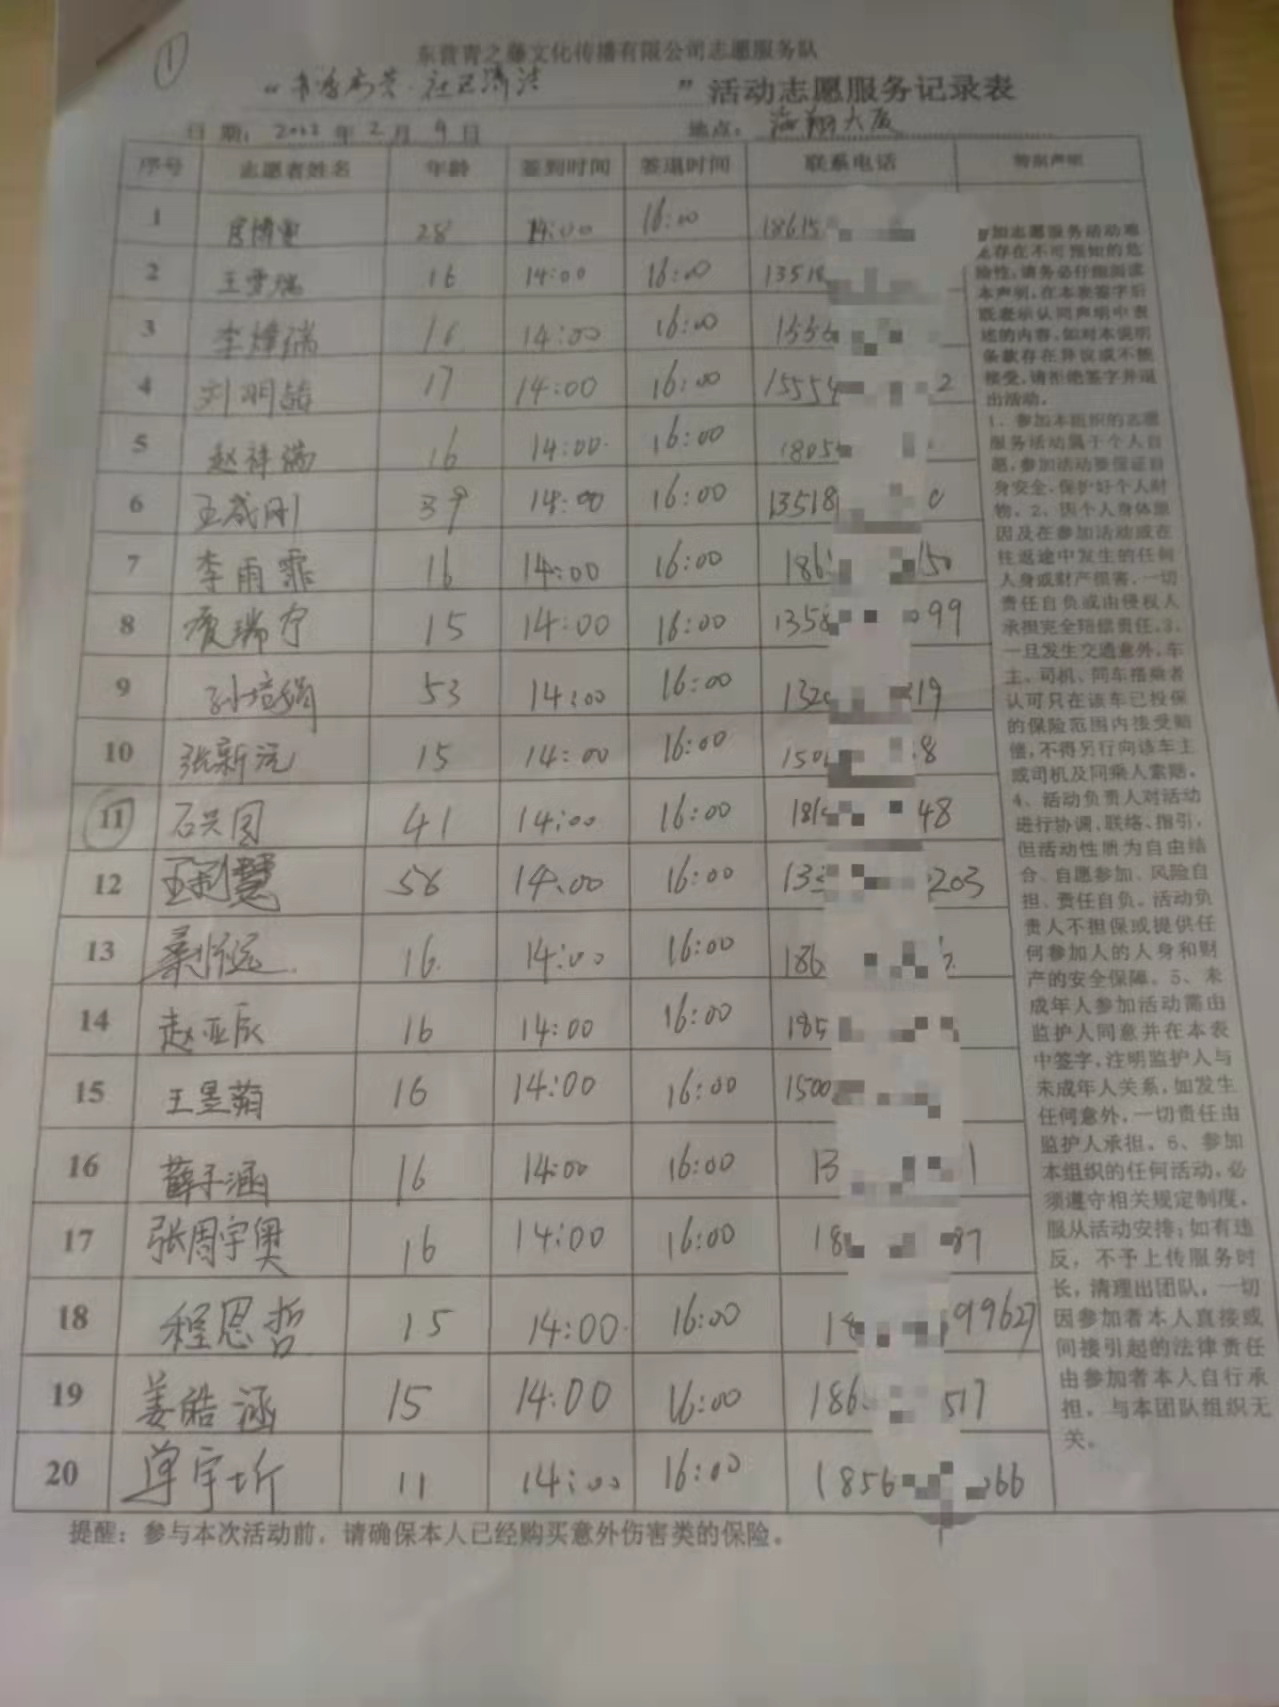 ①
东营青之藤文化传播有限公司志愿服务队
“ ”活动志愿服务记录表
日期：2022年2月9日 地点：海翔大厦
序号 志愿者姓名 年龄 签到时间 签退时间 联系电话 特别声明
1 28 14:00 16:00 18615
2 王雪瑞 16 14:00 16:00 13518
3 李烽瑞 16 14:00 16:00 1556
4 刘明喆 17 14:00 16:00 15554 2
5 赵祥瑞 16 14:00 16:00 1805
6 王成刚 39 14:00 16:00 13518 0
7 李雨霏 16 14:00 16:00 186 150
8 瑞宁 15 14:00 16:00 1358 099
9 孙培娟 53 14:00 16:00 132 19
10 张新沅 15 14:00 16:00 150 8
11 石兴国 41 14:00 16:00 181 48
12 王利慧 56 14:00 16:00 13 203
13 16 14:00 16:00 186
14 赵亚辰 16 14:00 16:00 185
15 王昱蒴 16 14:00 16:00 1500
16 薛子涵 16 14:00 16:00 13 1
17 张周宇奥 16 14:00 16:00 18 87
18 程恩哲 15 14:00 16:00 18 99627
19 姜皓涵 15 14:00 16:00 186 517
20 单宇圻 11 14:00 16:00 1856 066
加志愿服务活动难
存在不可预知的危
险性，请务必仔细阅读
本声明，在本表签字后
既表示认同声明中表
述的内容，如对本说明
条款存在异议或不能
接受，请拒绝签字并退
出活动。
1、参加本组织的志愿
服务活动属于个人自
愿，参加活动要保证自
身安全，保护好个人财
物。2、因个人身体原
因及在参加活动或在
往返途中发生的任何
人身或财产损害，一切
责任自负或由侵权人
承担完全赔偿责任。3、
一旦发生交通意外，车
主、司机、同车搭乘者
认可只在该车已投保
的保险范围内接受赔
偿，不得另行向该车主
或司机及同乘人索赔。
4、活动负责人对活动
进行协调、联络、指引，
但活动性质为自由结
合、自愿参加、风险自
担、责任自负。活动负
责人不担保或提供任
何参加人的人身和财
产的安全保障。5、未
成年人参加活动需由
监护人同意并在本表
中签字，注明监护人与
未成年人关系，如发生
任何意外，一切责任由
监护人承担。6、参加
本组织的任何活动，必
须遵守相关规定制度，
服从活动安排；如有违
反，不予上传服务时
长，清理出团队，一切
因参加者本人直接或
间接引起的法律责任
由参加者本人自行承
担，与本团队组织无
关。
提醒：参与本次活动前，请确保本人已经购买意外伤害类的保险。